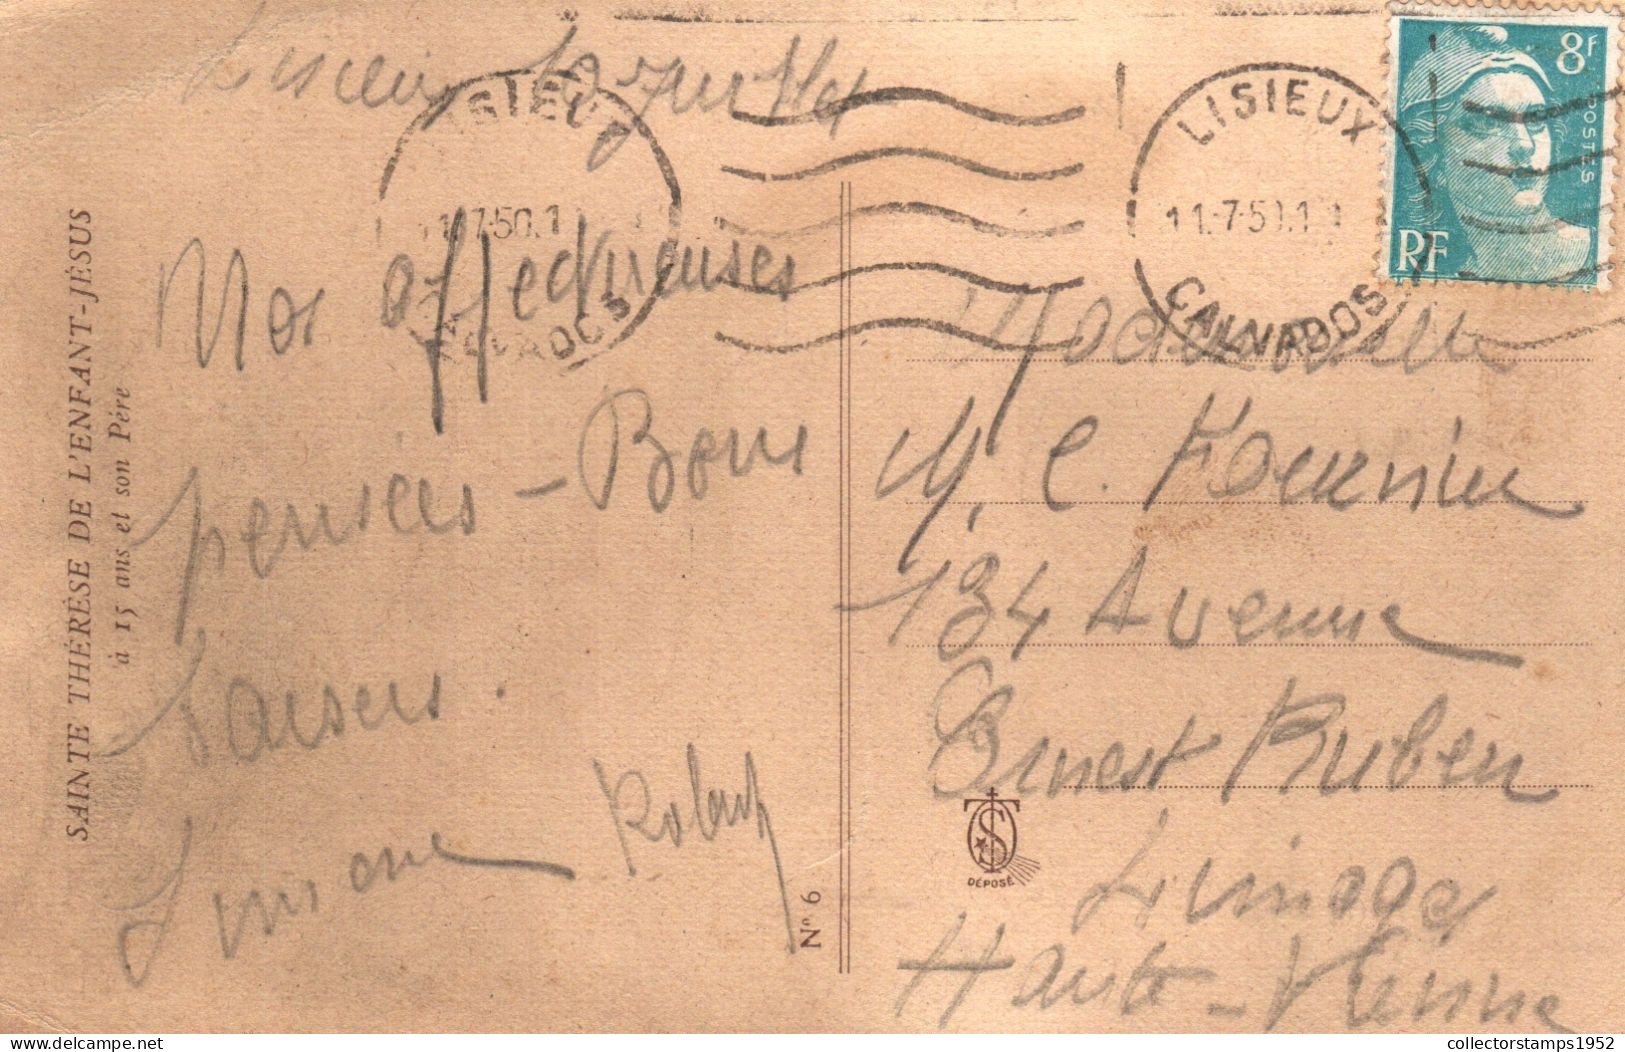 LISIEUX
11.7.50.1
CALVADOS
LISIEUX
11.-7-50.1
CALVADOS
8F
POSTES
RF
Lisieux
Nos affectueuses
pensées - Bons
baisers.
Simone Robert
Madame
M. C. Fournier
134 Avenue
Ernest Ruben
Limoges
Haute-Vienne
SAINTE THÉRÈSE DE L'ENFANT-JÉSUS
à 15 ans et son Père
N° 6
DÉPOSÉ
collectorstamps1952